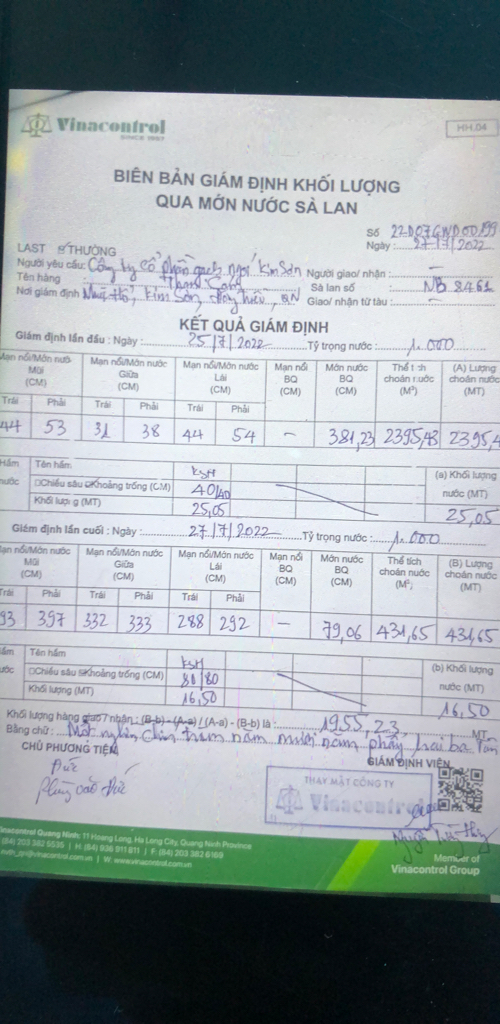 Vinacontrol
SINCE 1957
HH.04
BIÊN BẢN GIÁM ĐỊNH KHỐI LƯỢNG
QUA MỚN NƯỚC SÀ LAN
Số 22D07GWD00
Ngày : 27/7/2022
LAST THƯỜNG
Người yêu cầu: Công ty cổ phần gạch ngói Kim Sơn Người giao/ nhận : —
Tên hàng Than Cám Sà lan số NB 8461
Nơi giám định Kim Sơn, Đông Triều, QN Giao/ nhận từ tàu : —
KẾT QUẢ GIÁM ĐỊNH
Giám định lần đầu : Ngày : 25/7/2022 Tỷ trọng nước : 1.000
Mạn nổi/Mớn nước Mũi (CM) Mạn nổi/Mớn nước Giữa (CM) Mạn nổi/Mớn nước Lái (CM) Mạn nổi BQ (CM) Mớn nước BQ (CM) Thể tích choán nước (M³) (A) Lượng choán nước (MT)
Trái Phải Trái Phải Trái Phải
44 53 31 38 44 54 — 381,23 2395,43 2395,4
Hầm nước Tên hầm KSH (a) Khối lượng nước (MT)
□Chiều sâu Khoảng trống (CM) 40/40
Khối lượng (MT) 25,05 25,05
Giám định lần cuối : Ngày : 27/7/2022 Tỷ trọng nước : 1.000
Mạn nổi/Mớn nước Mũi (CM) Mạn nổi/Mớn nước Giữa (CM) Mạn nổi/Mớn nước Lái (CM) Mạn nổi BQ (CM) Mớn nước BQ (CM) Thể tích choán nước (M³) (B) Lượng choán nước (MT)
Trái Phải Trái Phải Trái Phải
93 397 332 333 288 292 — 79,06 431,65 431,65
Hầm nước Tên hầm KSH (b) Khối lượng nước (MT)
□Chiều sâu Khoảng trống (CM) 80/80
Khối lượng (MT) 16,50 16,50
Khối lượng hàng giao / nhận : (B-b) - (A-a) / (A-a) - (B-b) là : 1955,23 MT
Bằng chữ : Một nghìn chín trăm năm mươi năm phẩy hai ba Tấn
CHỦ PHƯƠNG TIỆN
GIÁM ĐỊNH VIÊN
Đức
Phùng Đức
THAY MẶT CÔNG TY
Vinacontrol
Vinacontrol Quang Ninh: 11 Hoang Long, Ha Long City, Quang Ninh Province
(84) 203 382 5536 | H: (84) 936 911 811 | F: (84) 203 382 6169
@vinacontrol.com.vn | W: www.vinacontrol.com.vn
Member of
Vinacontrol Group